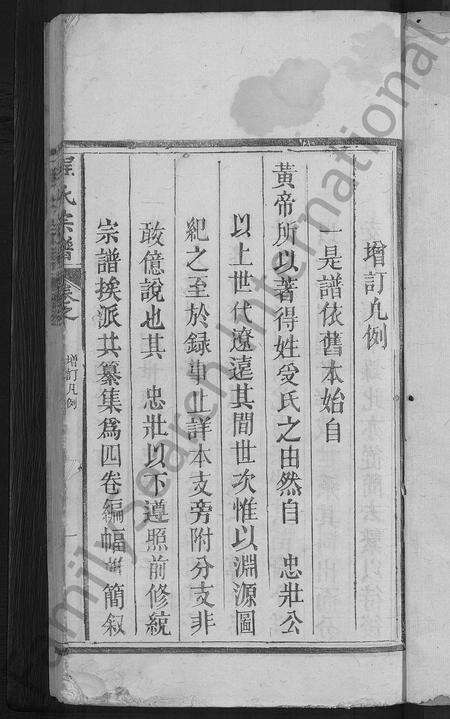 增訂凡例
一是譜依舊本始自
黃帝所以著得姓受氏之由然自 忠壯公
以上世代遼遠其間世次惟以淵源圖
紀之至於録事止詳本支旁附分支非
敢億說也其 忠壯以下遵照前修統
宗譜挨派共纂集爲四卷編幅 簡叙
程氏宗譜 卷之 增訂凡例 一
familysearch International